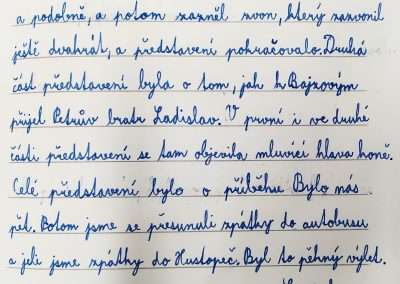 a podobně, a potom zazněl zvon, který zazvonil
ještě dvahrát, a představení pokračovalo. Druhá
část představení byla o tom, jak k Bajzovým
přijel Petrův bratr Ladislav. V první i ve druhé
části představení se tam objevila mluvící hlava koně.
Celé představení bylo o příběhu Bylo nás
pět. Potom jsme se přesunuli zpátky do autobusu
a jeli jsme zpátky do Hustopeč. Byl to pěhný výlet.